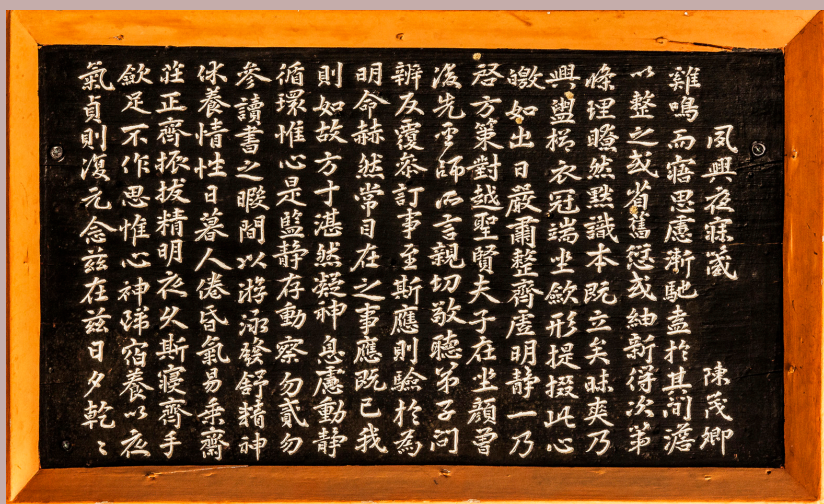 夙興夜寐箴 陳茂卿
雞鳴而寤思慮漸馳盍於其間澹
以整之或省舊愆或紬新得次第
條理瞭然默識本既立矣昧爽乃
興盥櫛衣冠端坐歛形提掇此心
皦如出日嚴肅整齊虛明靜一乃
啓方策對越聖賢夫子在坐顔曾
後先聖師所言親切敬聽弟子問
辨反覆叅訂事至斯應則驗於爲
明命赫然常目在之事應既已我
則如故方寸湛然凝神息慮動靜
循環惟心是監静存動察勿貳勿
参讀書之暇間以游泳發舒精神
休養情性日暮人倦昏氣易乗齋
莊正齊振拔精明夜久斯寢齊手
歛足不作思惟心神歸宿養以夜
氣貞則復元念兹在兹日夕乾〻